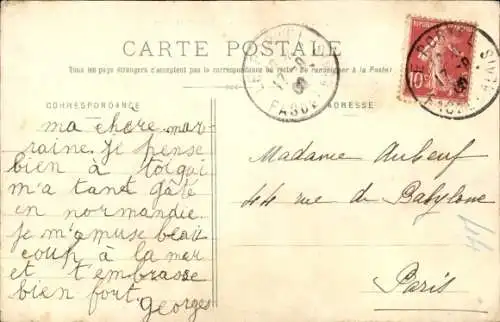 CARTE POSTALE
Tous les pays étrangers n'acceptent pas la correspondance au recto. Se renseigner à la Poste)
CORRESPONDANCE
ADRESSE
ma chère mar-
raine. Je pense
bien à toi qui
m'a tant gâté
en normandie.
Je m'amuse beau
coup à la mer
et t'embrasse
bien fort.
Georges
Madame Aubeuf
44 rue de Babylone
Paris
10c